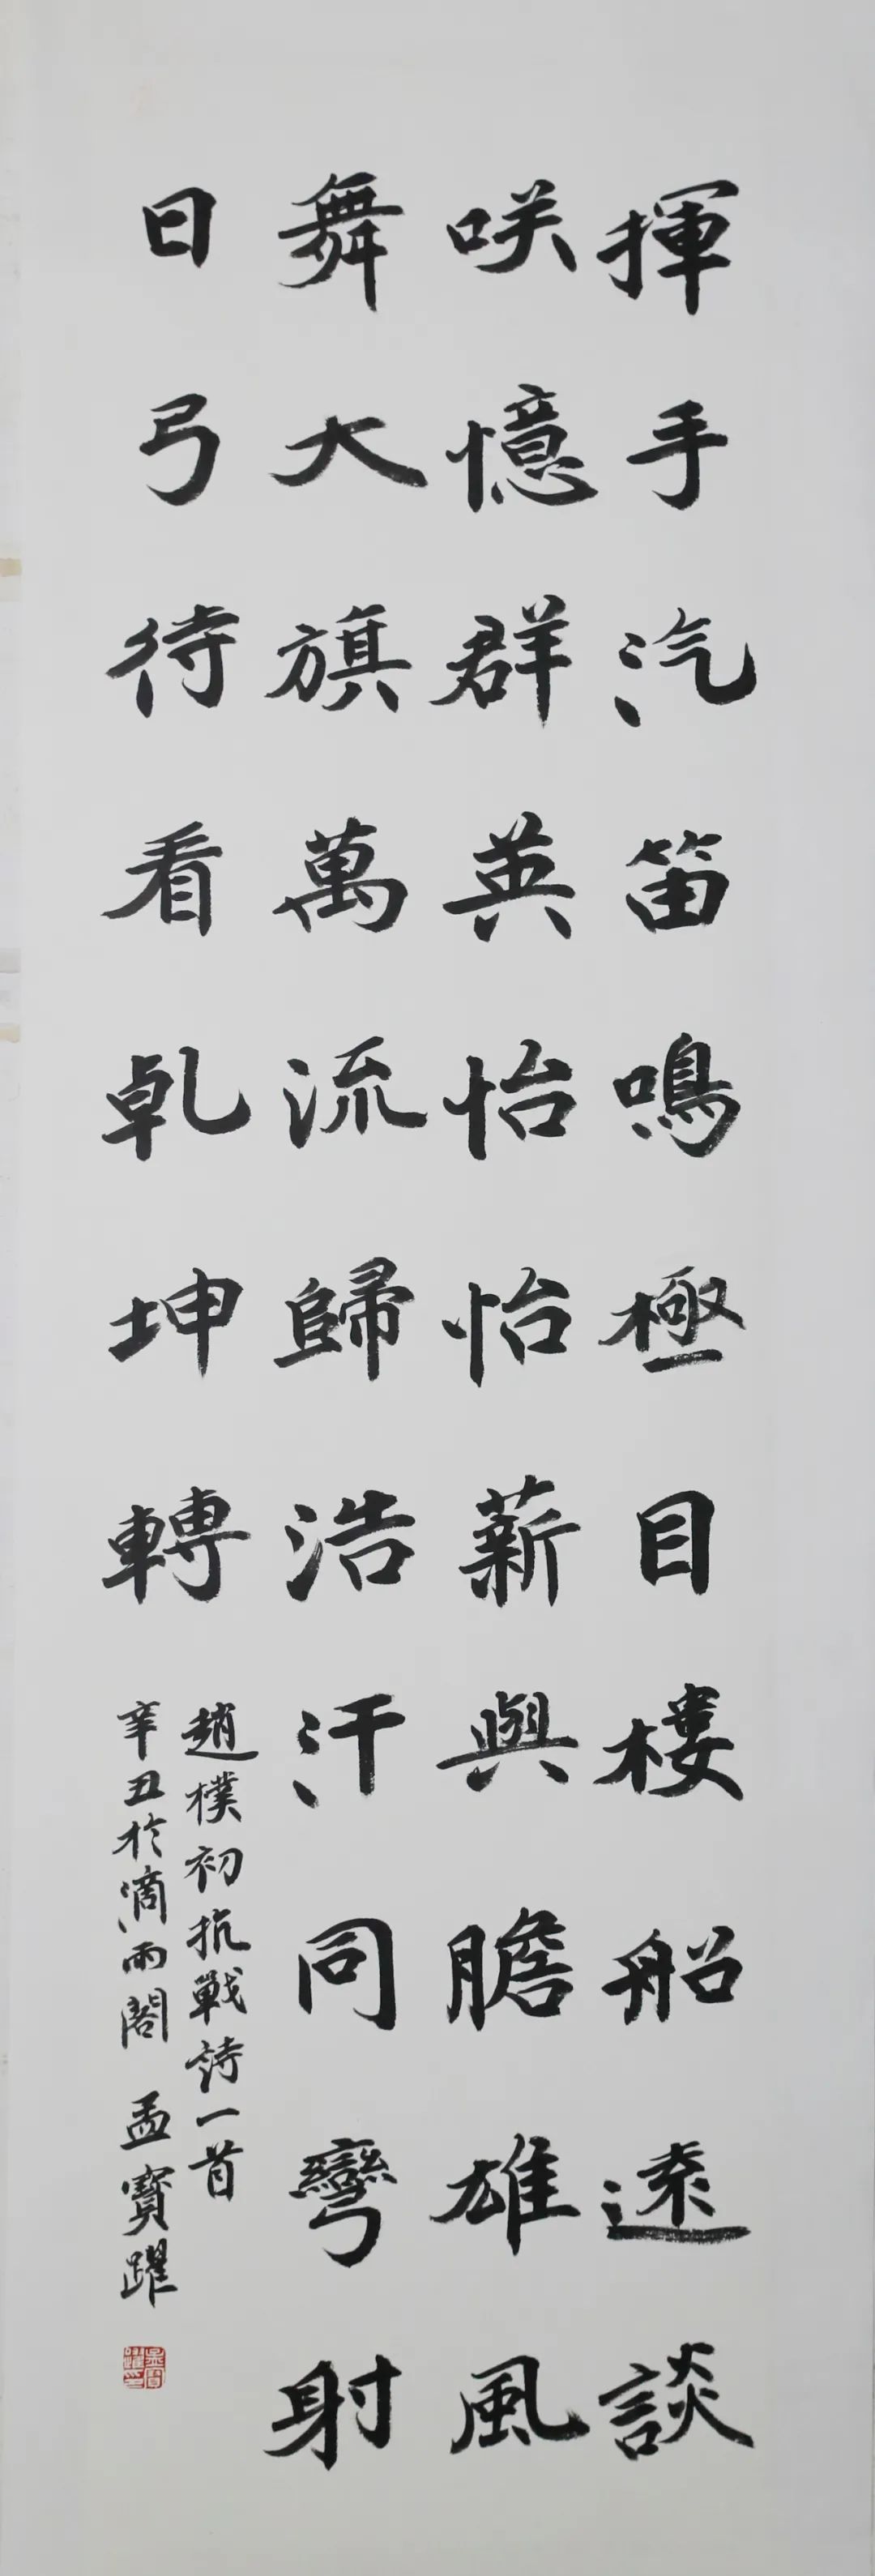 揮手汽笛鳴極目樓船遠談
咲憶群英怡怡薪與膽雄風
舞大旗萬流歸浩汗同彎射
日弓待看乹坤轉
趙樸初抗戰詩一首
辛丑於滴雨閣 孟寶躍